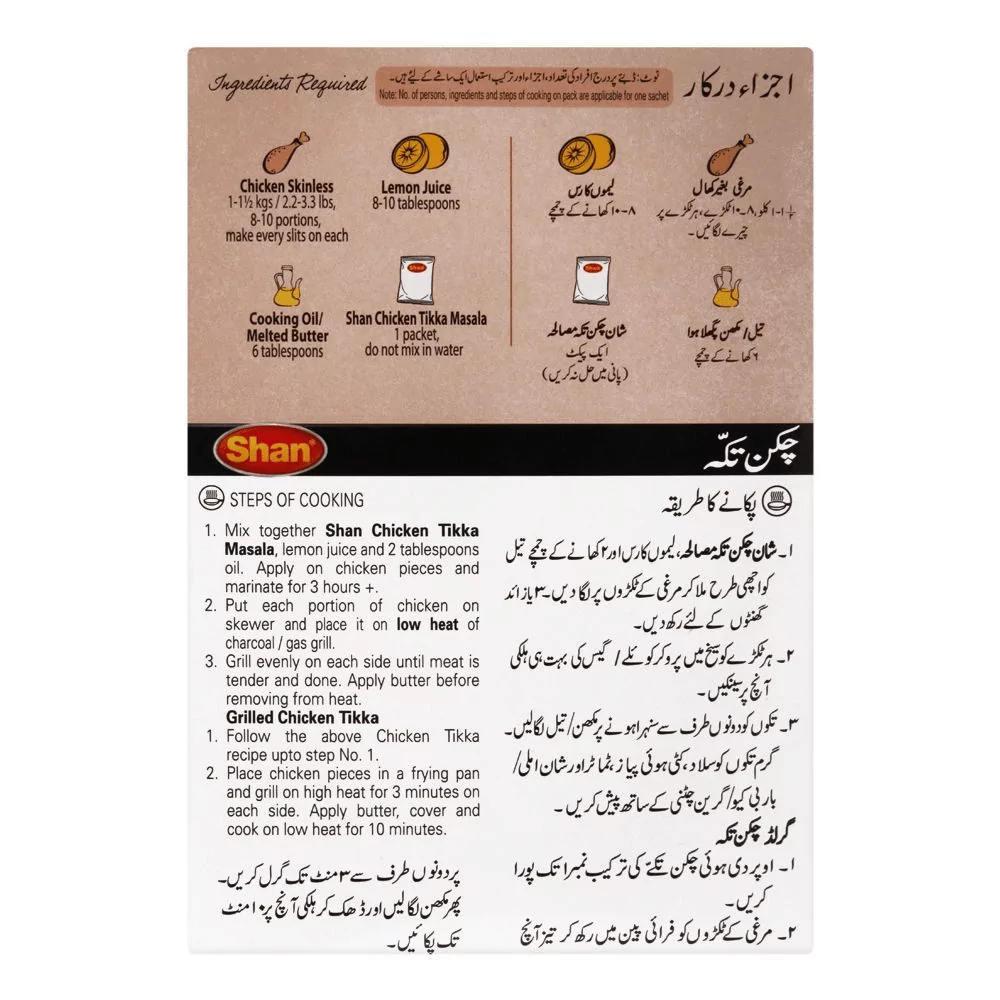 Ingredients Required
نوٹ: ڈبّے پر درج افراد کی تعداد، اجزاء اور ترکیب استعمال ایک ساشے کے لیئے ہیں۔
Note: No. of persons, ingredients and steps of cooking on pack are applicable for one sachet
اجزاء درکار
Chicken Skinless
1-1½ kgs / 2.2-3.3 lbs,
8-10 portions,
make every slits on each
Lemon Juice
8-10 tablespoons
Cooking Oil/
Melted Butter
6 tablespoons
Shan
Shan Chicken Tikka Masala
1 packet,
do not mix in water
مرغی بغیر کھال
۱-۱½ کلو، ۸-۱۰ ٹکڑے، ہر ٹکڑے پر
چیرے لگائیں۔
لیموں کا رس
۸-۱۰ کھانے کے چمچے
تیل/مکھن پگھلا ہوا
۶ کھانے کے چمچے
Shan
شان چکن تکہ مصالحہ
ایک پیکٹ
(پانی میں حل نہ کریں)
Shan®
چکن تکّہ
STEPS OF COOKING
1. Mix together Shan Chicken Tikka
Masala, lemon juice and 2 tablespoons
oil. Apply on chicken pieces and
marinate for 3 hours +.
2. Put each portion of chicken on
skewer and place it on low heat of
charcoal / gas grill.
3. Grill evenly on each side until meat is
tender and done. Apply butter before
removing from heat.
Grilled Chicken Tikka
1. Follow the above Chicken Tikka
recipe upto step No. 1.
2. Place chicken pieces in a frying pan
and grill on high heat for 3 minutes on
each side. Apply butter, cover and
cook on low heat for 10 minutes.
پکانے کا طریقہ
۱۔ شان چکن تکہ مصالحہ، لیموں کا رس اور ۲ کھانے کے چمچے تیل
کو اچھی طرح ملا کر مرغی کے ٹکڑوں پر لگا دیں۔ ۳ یا زائد
گھنٹوں کے لئے رکھ دیں۔
۲۔ ہر ٹکڑے کو سیخ میں پرو کر کوئلے / گیس کی بہت ہی ہلکی
آنچ پر سینکیں۔
۳۔ تکوں کو دونوں طرف سے سنہرا ہونے پر مکھن/تیل لگالیں۔
گرم تکوں کو سلاد، کٹی ہوئی پیاز، ٹماٹر اور شان املی/
بار بی کیو/گرین چٹنی کے ساتھ پیش کریں۔
گرلڈ چکن تکہ
۱۔ اوپر دی ہوئی چکن تکّے کی ترکیب نمبر۱ تک پورا
کریں۔
۲۔ مرغی کے ٹکڑوں کو فرائی پین میں رکھ کر تیز آنچ
پر دونوں طرف سے ۳ منٹ تک گرل کریں۔
پھر مکھن لگالیں اور ڈھک کر ہلکی آنچ پر ۱۰ منٹ
تک پکائیں۔